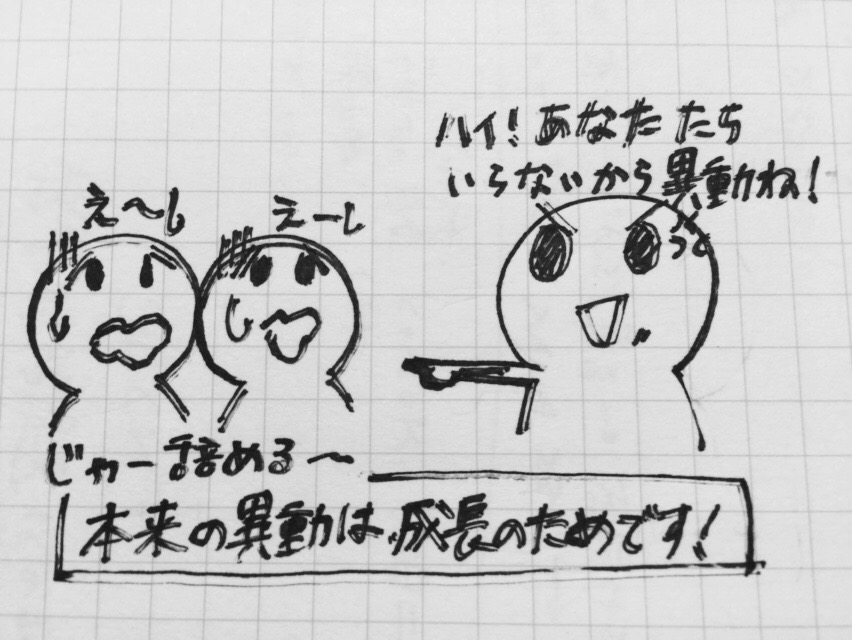 ハイ!あなたたち
いらないから異動ね!
え〜し
えーし
じゃー辞める〜
本来の異動は、成長のためです!